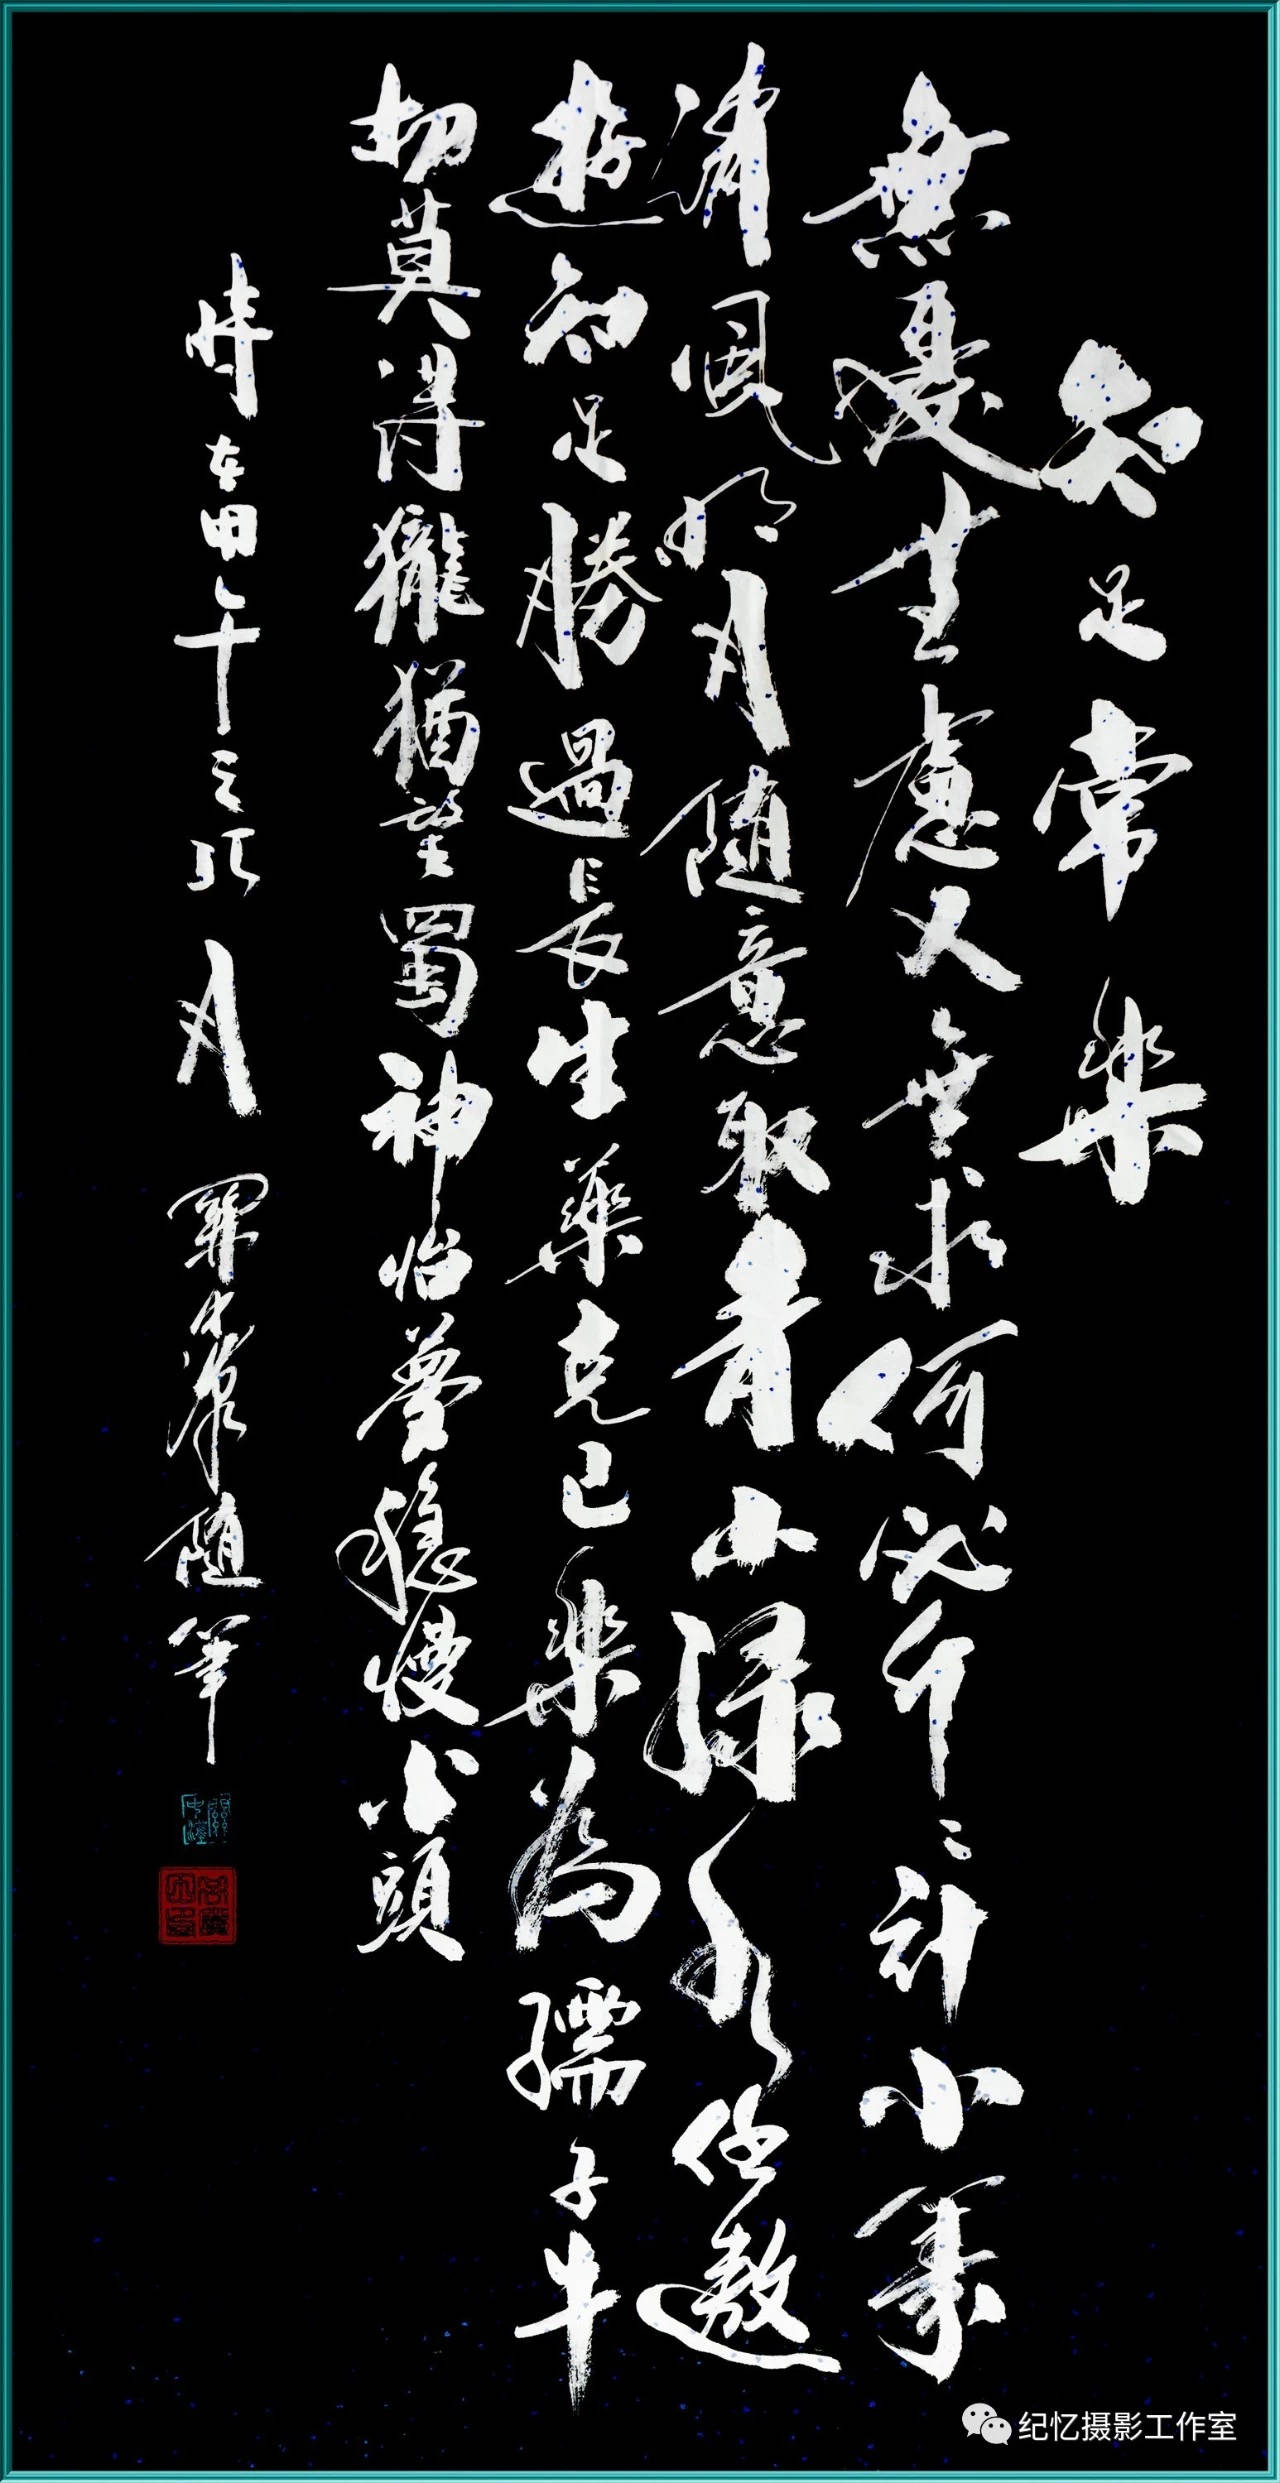 知足常樂
無憂無慮又無求何必斤斤計小籌
清風明月隨意取青山綠水任遨
遊知足勝過長生藥克己樂為孺子牛
切莫得隴猶望蜀神怡夢穩慢頭
時在甲午之月關隨筆
纪忆摄影工作室